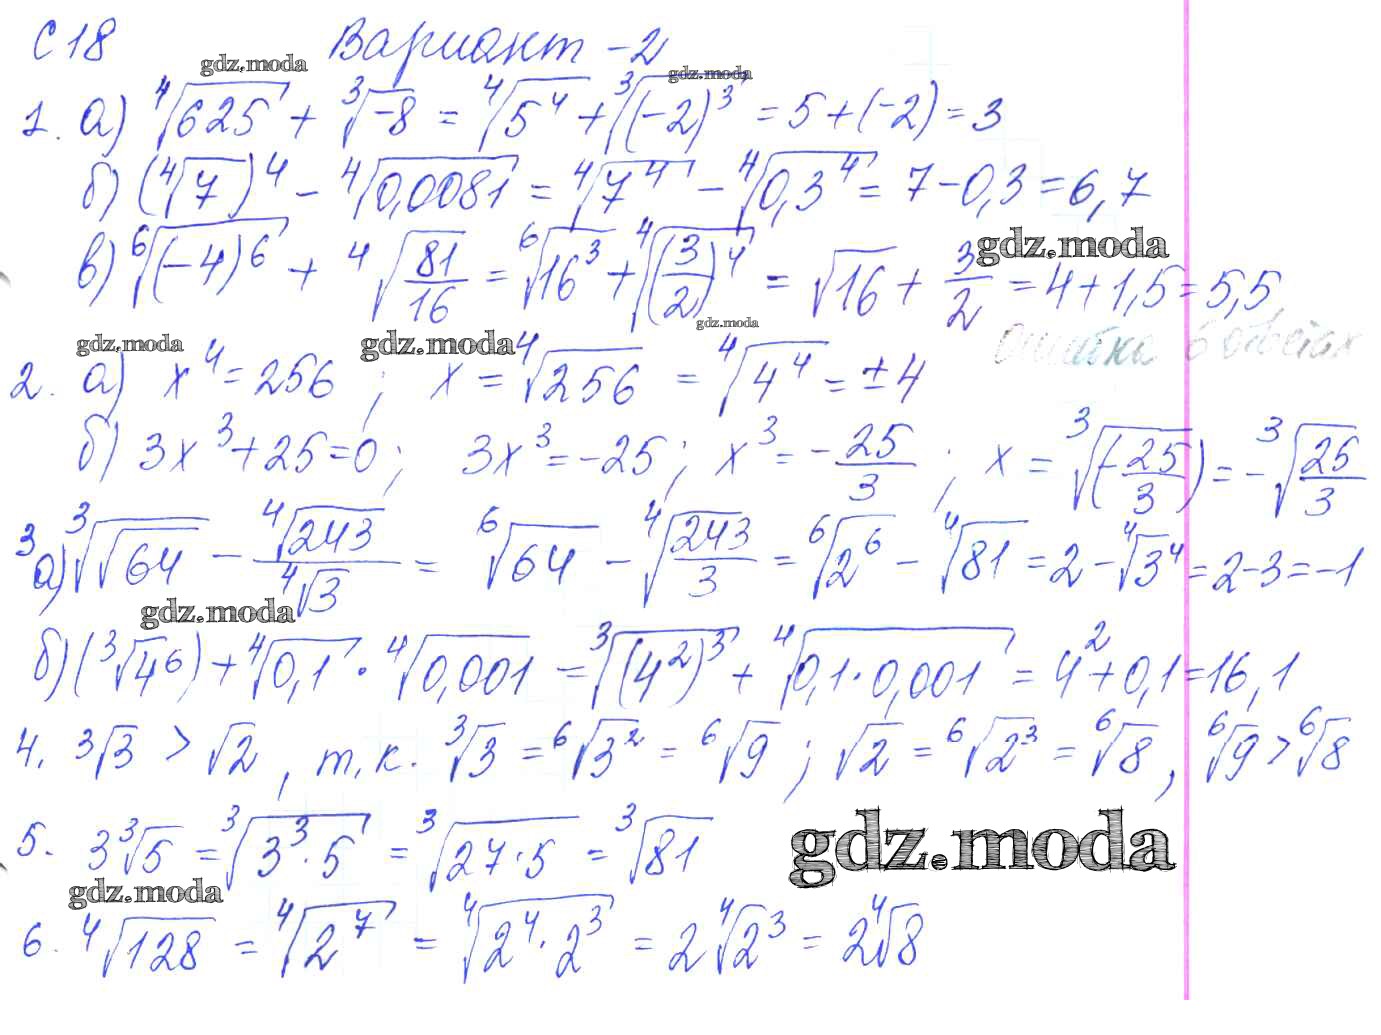 С 18 Вариант - 2
gdz.moda gdz.moda
1. а) ⁴√625 + ³√-8 = ⁴√5⁴ + ³√(-2)³ = 5 + (-2) = 3
б) (⁴√7)⁴ - ⁴√0,0081 = ⁴√7⁴ - ⁴√0,3⁴ = 7 - 0,3 = 6,7
gdz.moda
в) ⁶√(-4)⁶ + ⁴√81/16 = ⁶√16³ + ⁴√(3/2)⁴ = √16 + 3/2 = 4 + 1,5 = 5,5
gdz.moda gdz.moda gdz.moda
Ошибка в ответах
2. а) x⁴ = 256 ; x = ⁴√256 = ⁴√4⁴ = ±4
б) 3x³ + 25 = 0 ; 3x³ = -25 ; x³ = -25/3 ; x = ³√(-25/3) = -³√25/3
3 а) ³√√64 - ⁴√243/⁴√3 = ⁶√64 - ⁴√243/3 = ⁶√2⁶ - ⁴√81 = 2 - ⁴√3⁴ = 2 - 3 = -1
gdz.moda
б) (³√4⁶) + ⁴√0,1 · ⁴√0,001 = ³√(4²)³ + ⁴√0,1 · 0,001 = 4² + 0,1 = 16,1
4. ³√3 > √2 , т.к. ³√3 = ⁶√3² = ⁶√9 ; √2 = ⁶√2³ = ⁶√8 , ⁶√9 > ⁶√8
5. 3³√5 = ³√3³ · 5 = ³√27 · 5 = ³√81
gdz.moda
gdz.moda
6. ⁴√128 = ⁴√2⁷ = ⁴√2⁴ · 2³ = 2⁴√2³ = 2⁴√8